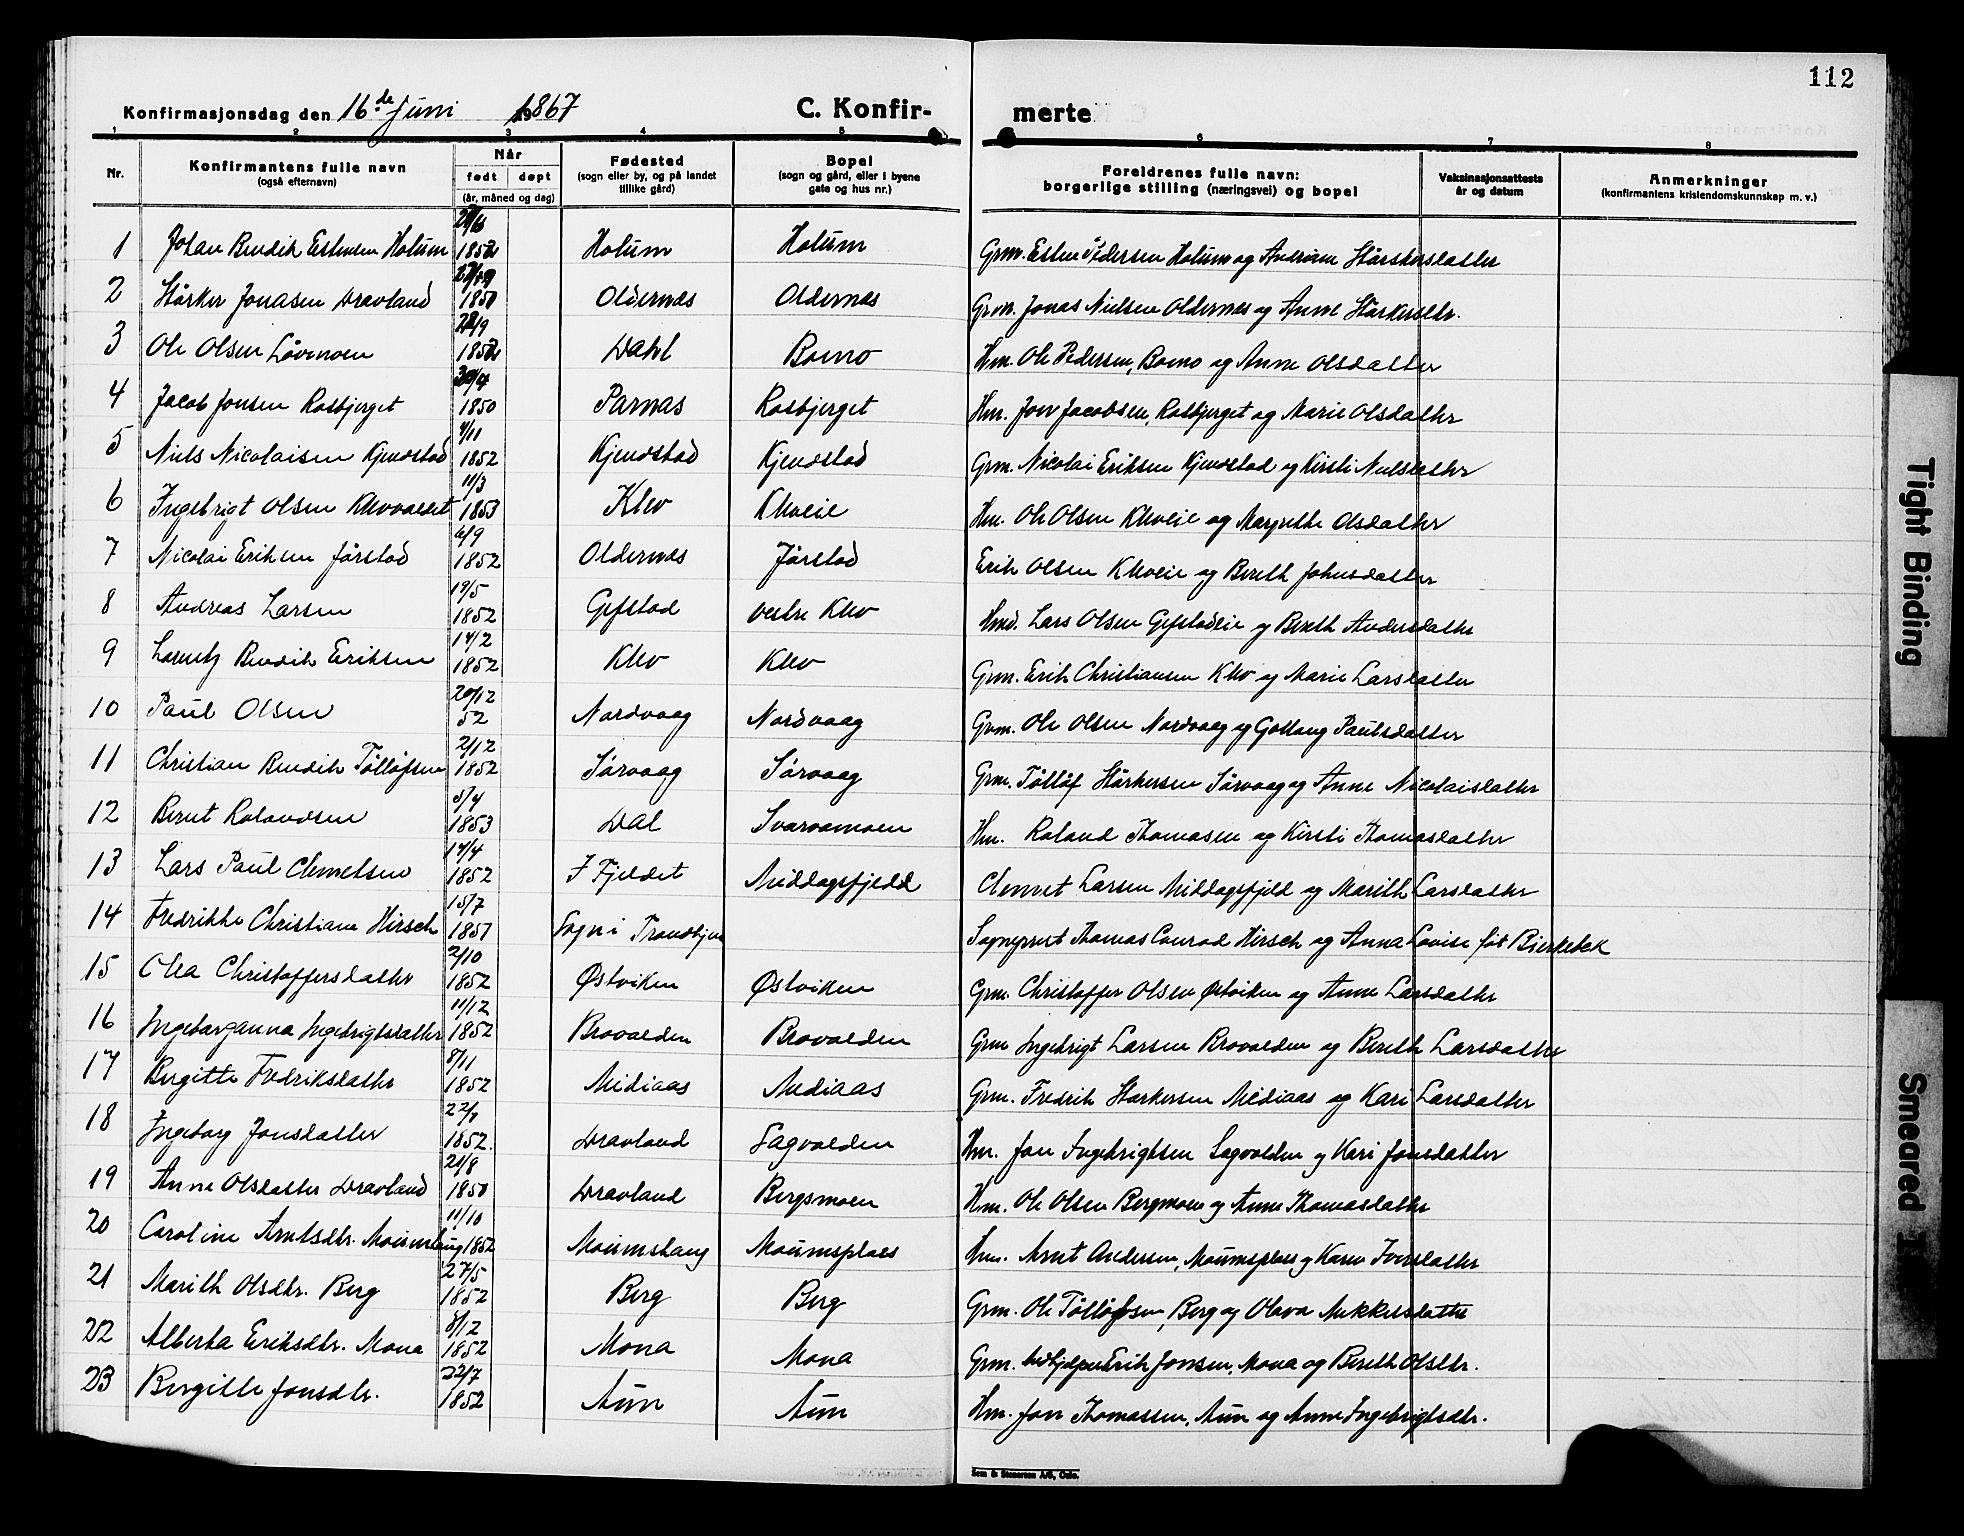 112
Konfirmasjonsdag den 16de Juni 1867 C. Konfir- merte
1 2 3 4 5 6 7 8
Nr. Konfirmantens fulle navn (også efternavn) Når født døpt (år, måned og dag) Fødested (sogn eller by, og på landet tillike gård) Bopel (sogn og gård, eller i byene gate og hus nr.) Foreldrenes fulle navn: borgerlige stilling (næringsvei) og bopel Vaksinasjonsattests år og datum Anmerkninger (konfirmantens kristendomskunnskap m. v.)
1 Johan Bendik Estensen Holum 1852 Holum Holum Grm. Esten Pedersen Holum og Andrine Stårkersdatter
2 Stårker Jonasen Dravland 1850 Oldernæs Oldernæs Grm. Jonas Nielsen Oldernæs og Anne Stårkersdtr.
3 Ole Olsen Løvmoen 28/9 1852 Dahl Bomo Hm. Ole Pedersen, Bomo og Anne Olsdatter
4 Jacob Jonsen Rosbjerget 1850 Parnas Rosbjerget Hm. Jon Jacobsen, Rosbjerget og Marie Olsdatter
5 Niels Nicolaisen Kjendstad 4/11 1852 Kjendstad Kjendstad Grm. Nicolai Eriksen Kjendstad og Kirsti Nielsdatter
6 Ingebrigt Olsen Klevvaldet 11/3 1853 Klev Kleveie Hm. Ole Olsen Kleveie og Margrethe Olsdatter
7 Nicolai Eriksen Jørstad 6/9 1852 Oldernæs Jørstad Erik Olsen Kleveie og Bereth Johnsdatter
8 Andreas Larsen 19/5 1852 Gefstad vestre Klev Hmd. Lars Olsen Gefstadeie og Bereth Andersdatter
9 Lorentz Bendik Eriksen 14/2 1852 Klev Klev Grm. Erik Christiansen Klev og Marie Larsdatter
10 Paul Olsen 20/12 52 Nordvaag Nordvaag Grm. Ole Olsen Nordvaag og Gollaug Paulsdatter
11 Christian Bendik Tølløfsen 2/12 1852 Sørvaag Sørvaag Grm. Tølløf Stårkersen Sørvaag og Anne Nicolaisdatter
12 Bernt Rolandsen 5/4 1853 Dal Svarvamoen Hm. Roland Thomasen og Kirsti Thomasdatter
13 Lars Paul Clemetsen 14/4 1852 I Fjeldet Middagsfjeld Clemet Larsen Middagsfjeld og Marith Larsdatter
14 Fredrikke Christiane Hirsch 15/7 1851 Sogn i Trondhjem Sogneprest Thomas Conrad Hirsch og Anna Lovise føt Bierkebek
15 Olea Christoffersdatter 2/10 1852 Østviken Østviken Grm. Christoffer Olsen Østviken og Anne Larsdatter
16 Ingeborganna Ingebrigtsdatter 11/12 1852 Brovolden Brovolden Grm Ingebrigt Larsen Brovolden og Bereth Larsdatter
17 Birgitte Fredriksdatter 8/11 1852 Mediaas Mediaas Grm. Fredrik Størkersen Mediaas og Kari Larsdatter
18 Ingeborg Jonsdatter 1852. Dravland Sagvolden Hm. Jon Ingebrigtsen Sagvolden og Kari Jonsdatter
19 Anne Olsdatter Dravland 21/8 1850 Dravland Bergsmoen Hm. Ole Olsen Bergmoen og Anne Thomasdatter
20 Caroline Arntsdtr. Moumshaug 11/10 1852 Moumshaug Moumsplads Hm. Arnt Andersen, Moumsplads og Karen Iversdatter
21 Marith Olsdtr. Berg 27/5 1852 Berg Berg Grm. Ole Tølløfsen, Berg og Olava Mikkelsdatter
22 Alberta Eriksdtr. Mona 8/12 1852 Mona Mona Grm. Medhjelper Erik Jonsen, Mona og Bereth Olsdtr.
23 Bergitte Jonsdtr. 22/7 1852 Aun Aun Hm. Jon Thomassen, Aun og Anne Ingebrigtsdtr.
Sem & Stenersen A/S, Oslo.
Tight Binding
Smeared